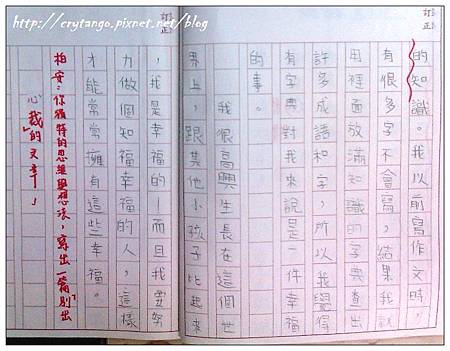 http://crytango.pixnet.net/blog
訂正
的知識。我以前寫作文時,
有很多字不會寫,結果我就
用裡面放滿知識的字典查出
許多成語和字,所以我覺得
有字典對我來說是一件幸福
的事。
我很高興生長在這個世
界上,跟其他小孩子比起來
訂正
,我是幸福的!而且我要努
力做個知福幸福的人,這樣
才能常常擁有這些幸福。
柏安:你獨特的思維與想法,寫出一篇別出
心裁的文章!